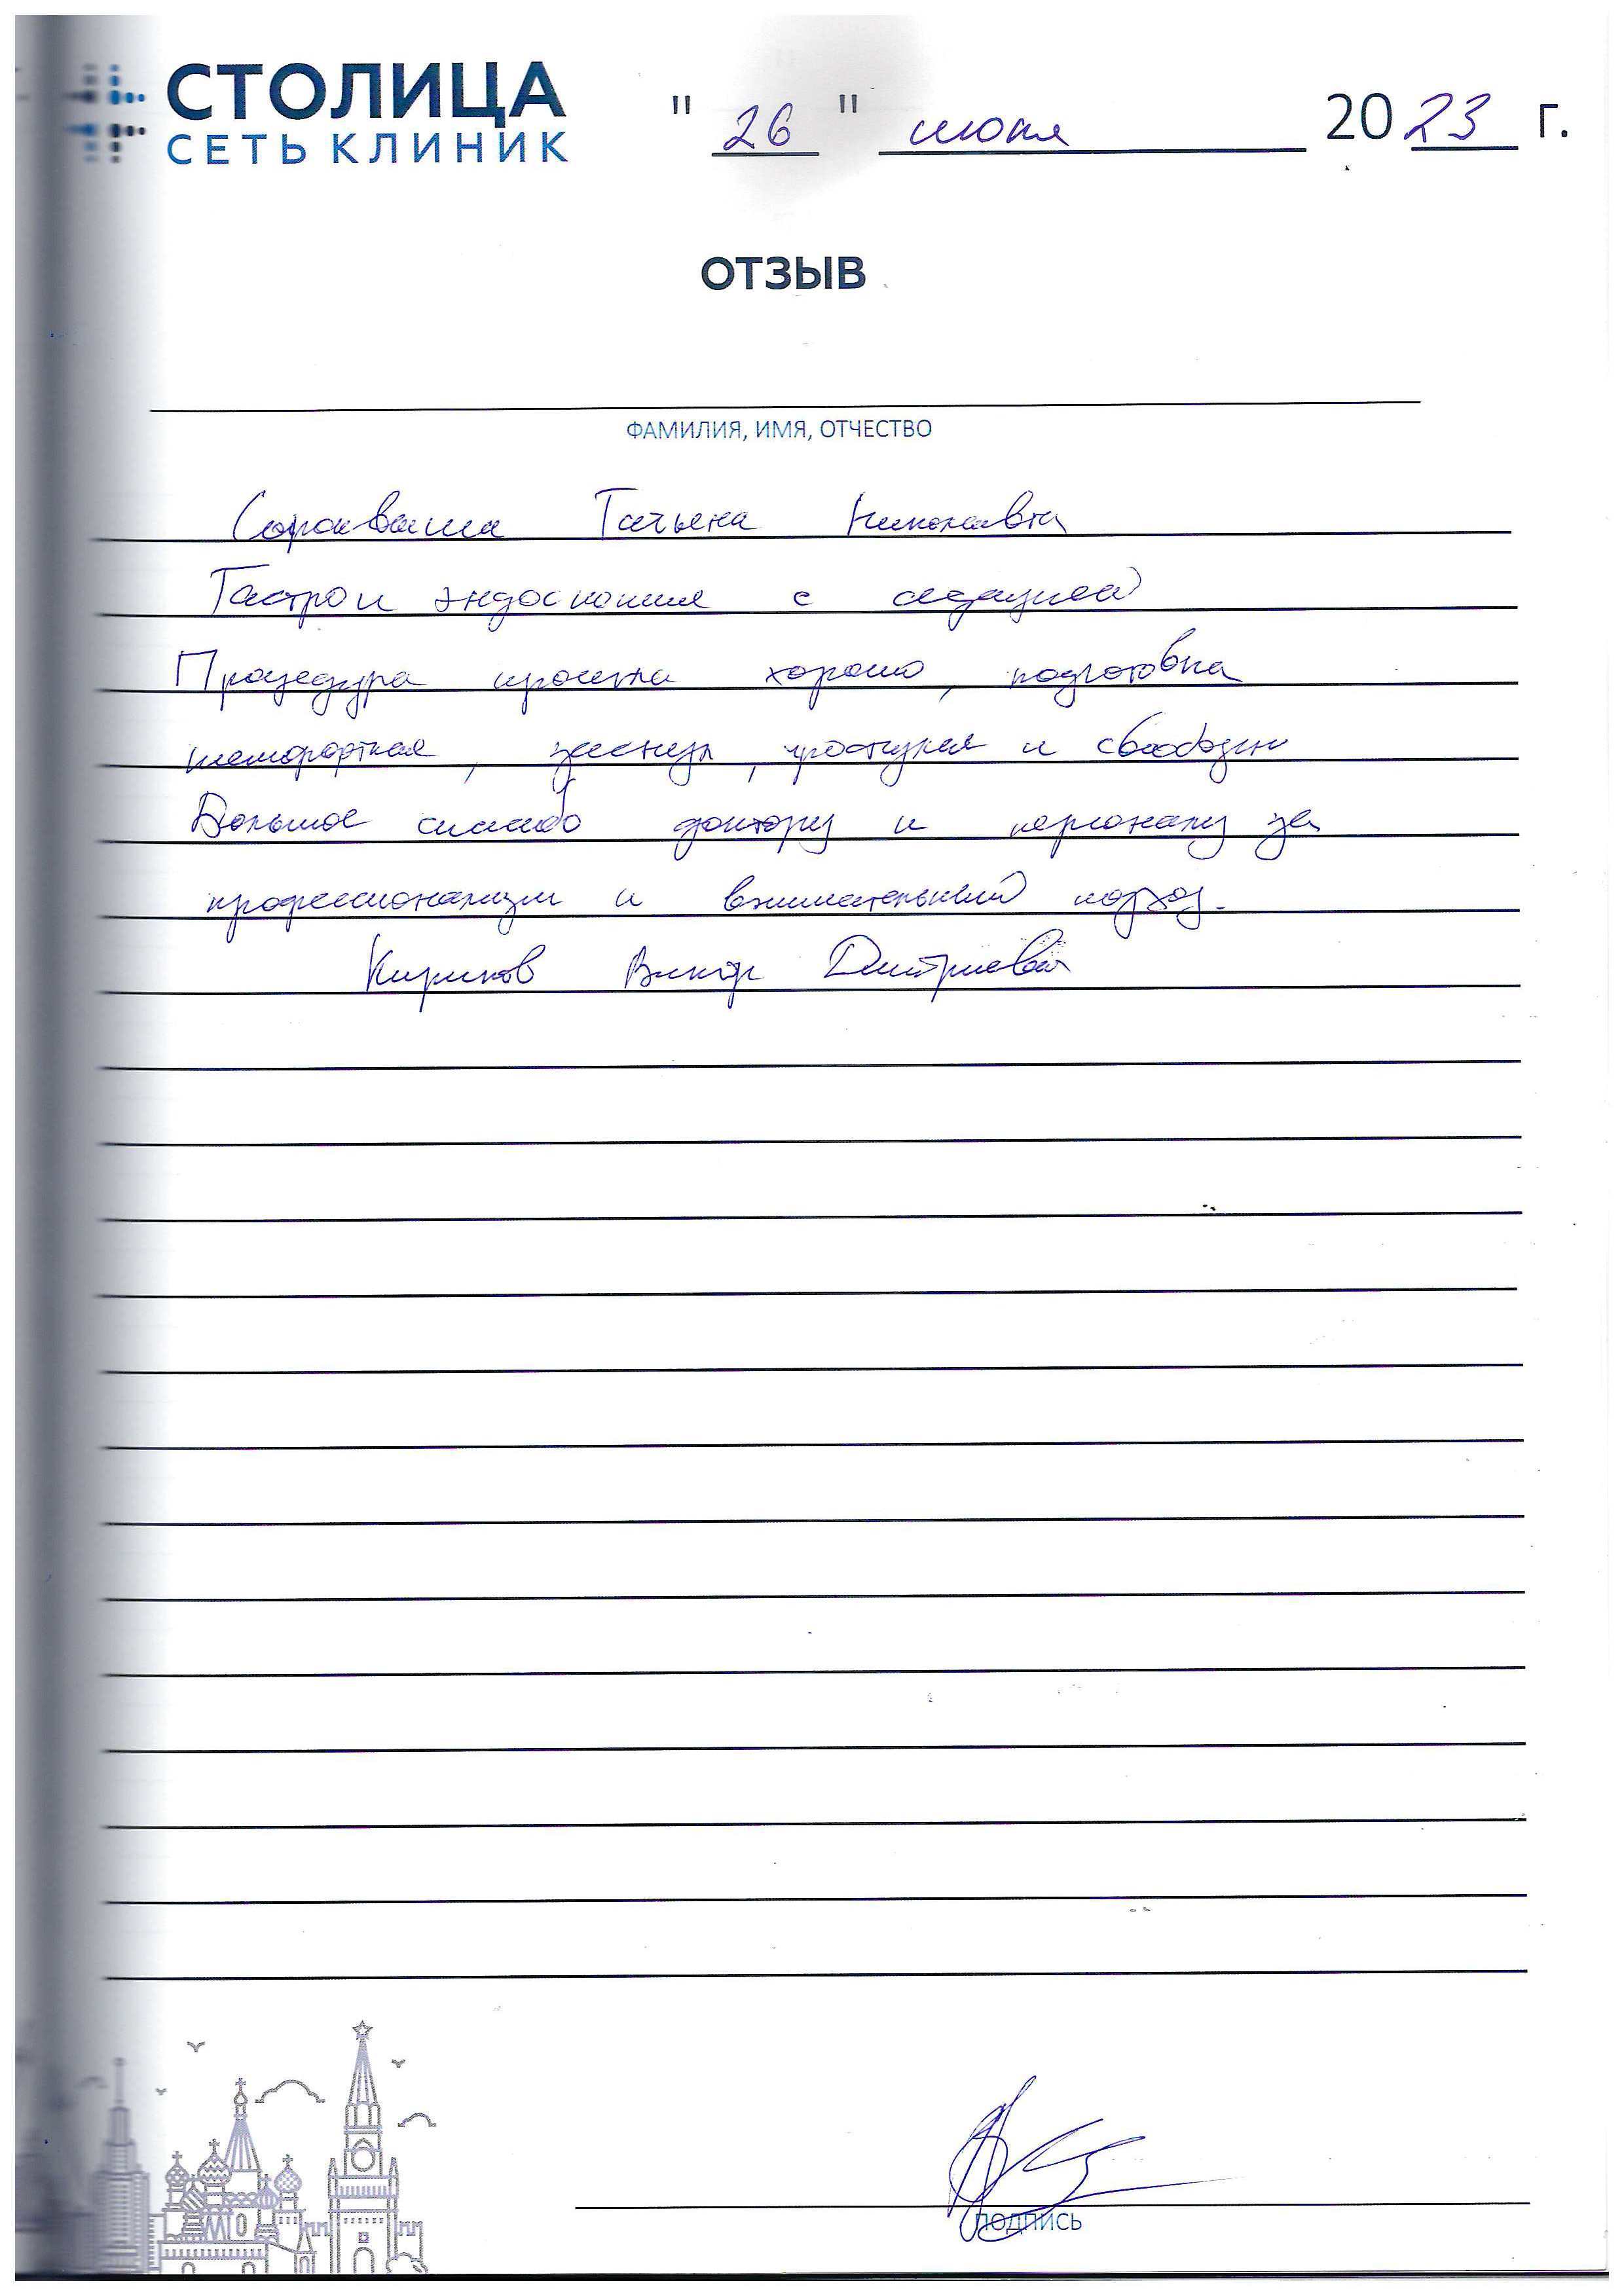 СТОЛИЦА
СЕТЬ КЛИНИК
" 26 " июля 2023 г.
ОТЗЫВ
ФАМИЛИЯ, ИМЯ, ОТЧЕСТВО
Татьяна Николавна
Гастро и эндоскопия с седацией
Процедура прошла хорошо, подготовка
комфортная, заснула, проснулся и свободен
Большое спасибо доктору и персоналу за
профессионализм и внимательный подход.
Кириков Виктор Дмитриевич
ПОДПИСЬ